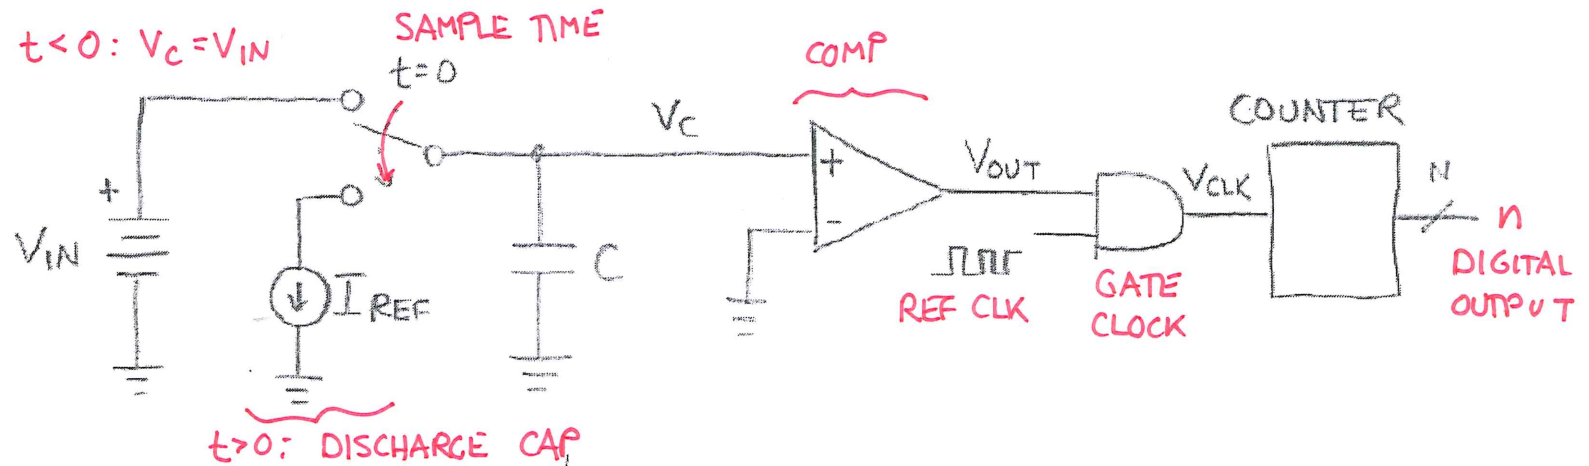 t<0: VC=VIN
SAMPLE TIME
t=0
COMP
VC
COUNTER
+
VIN
+
-
VOUT
VCLK
N
n
DIGITAL
OUTPUT
IREF
C
REF CLK
GATE
CLOCK
t>0: DISCHARGE CAP